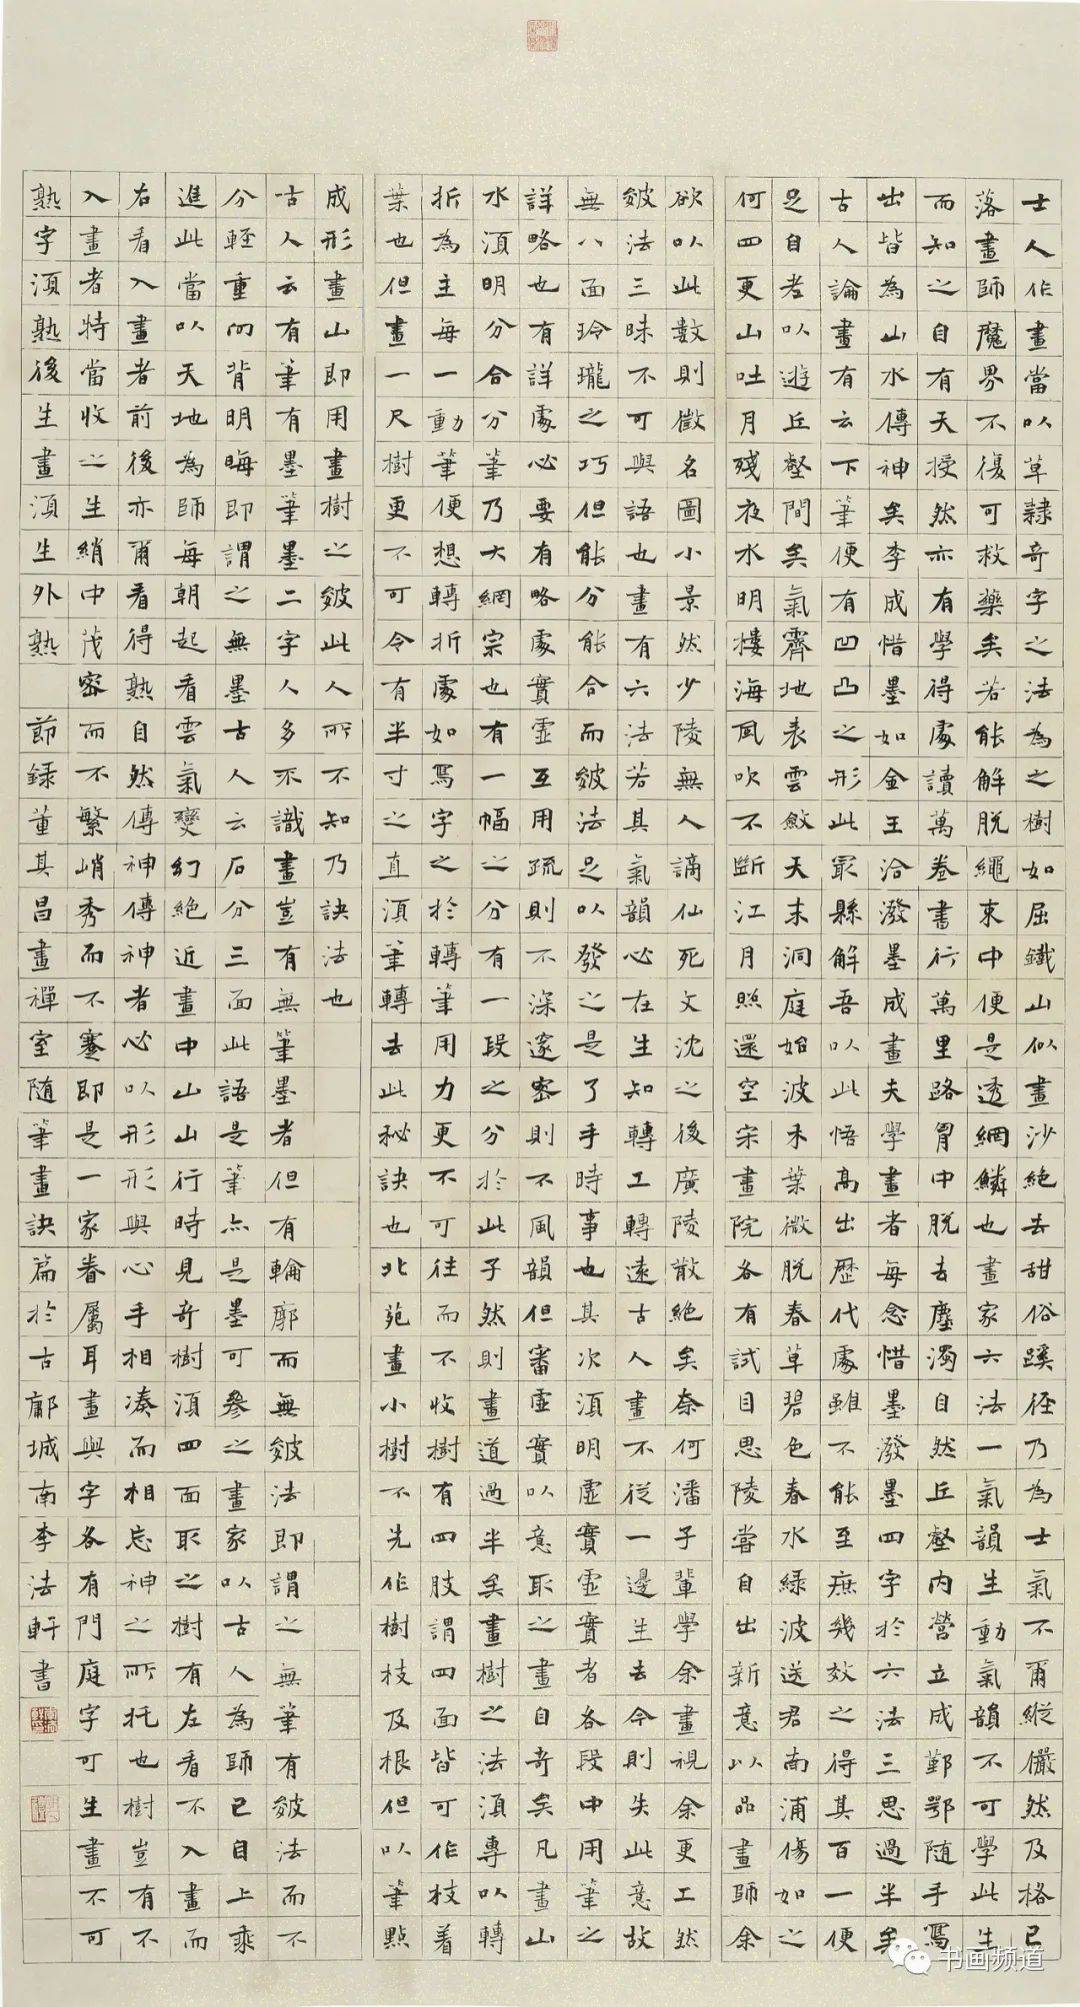 士人作畫當以草隸奇字之法為之樹如屈鐵山似畫沙絕去甜俗蹊径乃為士氣不爾縱儼然及格已
落畫師魔界不復可救藥矣若能解脱繩束中便是透網鱗也畫家六法一氣韻生動氣韻不可學此生
而知之自有天授然亦有學得處讀萬卷書行萬里路胃中脱去塵濁自然丘壑內营立成鄞鄂随手寫
出皆為山水傳神矣李成惜墨如金王洽潑墨成畫夫學畫者每念惜墨潑墨四字於六法三思過半矣
古人論畫有云下筆便有凹凸之形此最縣解吾以此悟高出歷代處雖不能至庶幾效之得其百一便
足自老以遊丘壑間矣氣霽地表雲斂天末洞庭始波木葉微脱春草碧色春水緑波送君南浦傷如之
何四更山吐月殘夜水明樓海風吹不斷江月照還空宋畫院各有試目思陵嘗自出新意以品畫師余
欲以此數則徵名圖小景然少陵無人謫仙死文沈之後廣陵散絶矣奈何潘子輩學余畫視余更工然
皴法三昧不可與語也畫有六法若其氣韻必在生知轉工轉遠古人畫不從一邊生去今則失此意故
無八面玲瓏之巧但能分能合而皴法足以發之是了手時事也其次須明虛實虛實者各段中用筆之
詳略也有詳處必要有略處實虛互用疏則不深邃密則不風韻但審虛實以意取之畫自奇矣凡畫山
水須明分合分筆乃大網宗也有一幅之分有一段之分於此子然則畫道過半矣畫樹之法須專以轉
折為主每一動筆便想轉折處如寫字之於轉筆用力更不可往而不收樹有四肢謂四面皆可作枝着
葉也但畫一尺樹更不可令有半寸之直須筆轉去此秘訣也北苑畫小樹不先作樹枝及根但以筆點
成形畫山即用畫樹之皴此人所不知乃訣法也
古人云有筆有墨筆墨二字人多不識畫豈有無筆墨者但有輪廓而無皴法即謂之無筆有皴法而不
分輕重向背明晦即謂之無墨古人云石分三面此語是筆亦是墨可參之畫家以古人為師已自上乘
進此當以天地為師每朝起看雲氣變幻絶近畫中山山行時見奇樹須四面取之樹有左看不入畫而
右看入畫者前後亦爾看得熟自然傳神傳神者必以形形與心手相凑而相忘神之所托也樹豈有不
入畫者特當收之生綃中茂密而不繁峭秀而不蹇即是一家眷屬耳畫與字各有門庭字可生畫不可
熟字須熟後生畫須生外熟 節録董其昌畫禪室随筆畫訣篇於古鄘城南李法軒書
书画频道